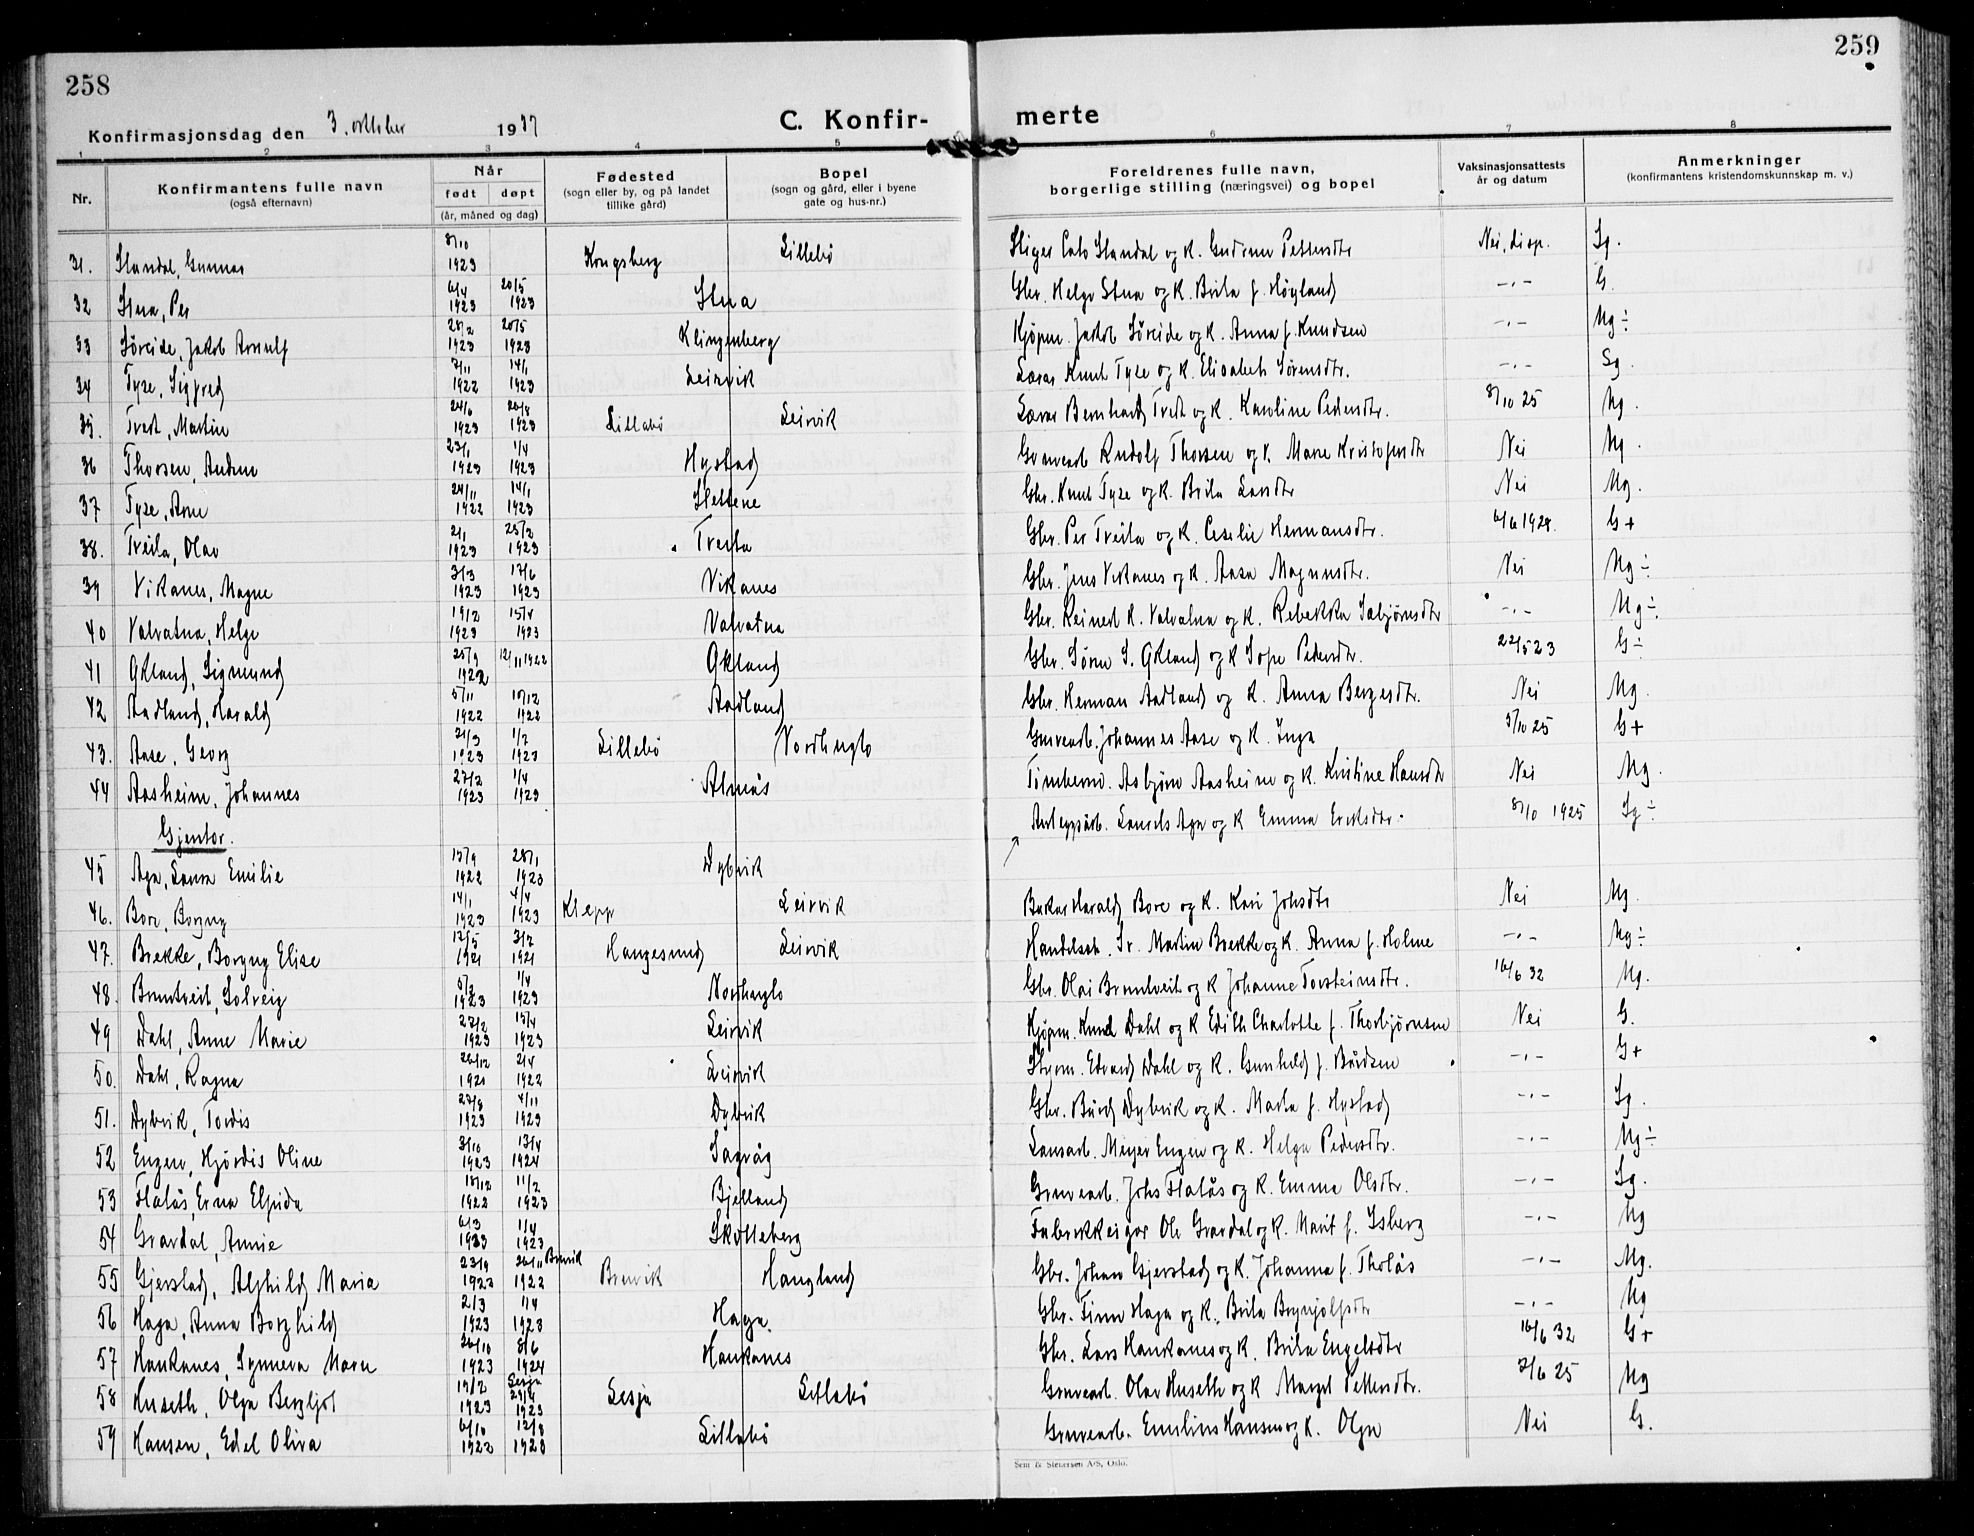 258
259
Konfirmasjonsdag den 3. oktober 1937
C. Konfir-
merte
1 2 3 4 5 6 7 8
Nr.
Konfirmantens fulle navn
(også efternavn)
Når
født døpt
(år, måned og dag)
Fødested
(sogn eller by, og på landet
tillike gård)
Bopel
(sogn og gård, eller i byene
gate og hus-nr.)
Foreldrenes fulle navn,
borgerlige stilling (næringsvei) og bopel
Vaksinasjonsattests
år og datum
Anmerkninger
(konfirmantens kristendomskunnskap m. v.)
31. Gunnar 8/10 1923 Kongsberg Lillebö Stiger og k. Gudrun Pettersdtr Nei, disp. Sg.
32 Stua, Per 6/4 1923 20/5 1923 Stua Gbr. Helge Stua og k. Brita f. Høyland -"- G.
33 Söreide, Jakob Arnulf 28/2 1923 20/5 1923 Klingenberg Kjøpm. Jakob Söreide og k. Anna f. Knudsen -"- Mg÷
34 Tyse, Sigfred 7/11 1922 14/1 1923 Leirvik Lærer Knut Tyse og k. Elisabeth Sörensdtr. -"- Sg.
35. Tvedt, Martin 24/6 1923 26/8 1923 Lillebö Leirvik Lærer Bernhard Tvedt og k. Karoline Pedersdtr. 8/10 25 Mg.
36 Thorsen, 23/1 1923 1/4 1923 Hystad Gruvearb Rudolf Thorsen og k. Marie Kristofersdtr Nei Mg.
37 Tyse, Arne 24/11 1922 14/1 1923 Slettene Gbr. Knut Tyse og k. Brita Larsdtr Nei Mg.
38. Tveita, Olav 2/1 1923 25/3 1923 Tveita Gbr. Per Tveita og k. Cesilie Hermansdtr. 6/6 1928. G+
39 Vikanes, Magne 3/3 1923 17/6 1923 Vikanes Gbr. Jens Vikanes og k. Aasa Magnusdtr. Nei Mg÷
40 Valvatna, Helge 19/2 1923 15/4 1923 Valvatna Gbr. Reinert K. Valvatna og k. Rebekka Sæbjörnsdtr -"- Mg÷
41 Økland, Sigmund 25/9 1922 12/11 1922 Økland Gbr. Sören S. Økland og k Sofie Pedersdtr. 22/5 23 G÷
42 Aadland, Harald 5/11 1922 10/12 1922 Aadland Gbr. Herman Aadland og k. Anna Bergesdtr. Nei Mg.
43. Aase, Georg 21/3 1923 1/7 1923 Lillebö Nordhuglo Gruvearb. Johannes Aase og k. Inga 5/10 25 G+
44 Aasheim, Johannes 27/2 1923 1/4 1923 Almås Tömberm. Asbjörn Aasheim og k. Kristine Hansdtr Nei Mg.
Gjentor.
45 Aga, Laura Emilie 15/9 1922 28/1 1923 Dybvik Anleggsarb. Laurits Aga og k Emma Eriksdtr. 8/10 1925 Sg÷
46. Bore, Borgny 14/1 1923 4/4 1923 Klepp Leirvik Baker Harald Bore og k. Kari Johsdtr Nei Mg.
47. Brekke, Borgny Elise 12/5 1921 3/7 1921 Haugesund Leirvik Handelsab. Sr. Martin Brekke og k. Anna f. Holme -"- Mg÷
48. Brautveit, Solveig 5/2 1923 1/4 1923 Nordhuglo Gbr. Olai Brautveit og k Johanne Torsteinsdtr. 16/6 32 Mg.
49 Dahl, Anne Marie 27/2 1923 15/4 1923 Leirvik Kjöpm. Knud Dahl og k Edith Charlotte f. Thorbjørnsen Nei G.
50. Dahl, Ragna 26/12 1921 2/4 1922 Leirvik Skyom. Edvard Dahl og k. Gunhild f. Bårdsen -"- G+
51. Dybvik, Tordis 27/8 1923 4/11 1923 Dybvik Gbr. Bård Dybvik og k. Marta f. Hystad -"- Sg.
52 Engen, Hjördis Oline 3/10 1923 13/4 1924 Sagvåg Lausarb. Meyer Engen og k. Helga Pedersdtr. -"- Mg÷
53 Flatås, Erna Elfrida 10/12 1922 11/2 1923 Bjelland Gruvearb. Johs Flatås og k. Emma Olsdtr. -"- Sg.
54 Gravdal, Annie 6/3 1923 1/4 1923 Skotteberg Fabrikkeigar Ole Gravdal og k. Marit f. Isberg -"- Mg
55 Gjerstad, Alfhild Maria 23/9 1922 26/11 1922 Brevik Brevik Haugland Gbr. Johan Gjerstad og k. Johanna f. Tholås -"- Mg.
56 Haga, Anna Borghild 2/3 1923 1/4 1923 Haga. Gbr. Finn Haga og k. Brita Brynjolfsdtr -"- Mg
57 Haukanes, Synneva Marie 26/10 1923 8/6 1924 Haukanes Gbr. Lars Haukanes og k. Brita Engelsdtr 16/6 32 G+
58 Huseth, Olga Bergljot 15/2 1923 Lesja 29/4 1923 Lesja Lillebö Gruvearb. Olav Huseth og k Margit Pettersdtr. 3/6 25 Mg
59 Hansen, Edel Oliva 6/10 1922 12/8 1923 Lillebö Gruvearb. Emilius Hansen og k. Olga Nei G.
Sem & Stenersen A/S, Oslo.